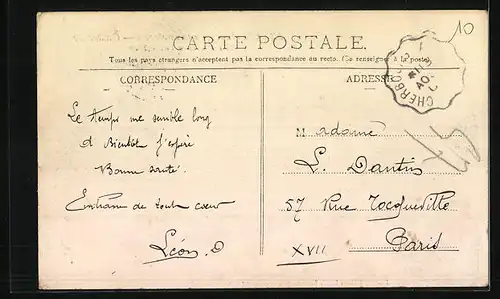 10
CARTE POSTALE.
Tous les pays étrangers n'acceptent pas la correspondance au recto. (Se renseigner à la poste).
CORRESPONDANCE
ADRESSE
CHERBO
Le temps me semble long
et Bientôt j'espère
Bonne santé.
de tout cœur
Léon. D
Madame
L. Dantin
57 Rue Tocqueville
XVII
Paris